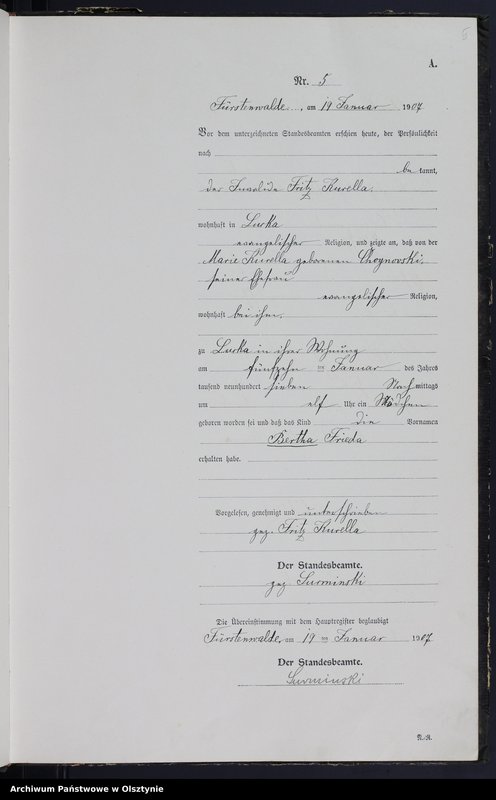 5
A.
Nr. 5
Fürstenwalde, am 19 Januar 1907
Vor dem unterzeichneten Standesbeamten erschien heute, der Persönlichkeit
nach
be kannt,
der Invalide Fritz Kurella,
wohnhaft in Lucka
evangelischer Religion, und zeigte an, daß von der
Marie Kurella geborenen Choynovski,
seiner Ehefrau
evangelischer Religion,
wohnhaft bei ihm,
zu Lucka in ihrer Wohnung
am fünfzehn ten Januar des Jahres
tausend neunhundert sieben Nach mittags
um elf Uhr ein Mädchen
geboren worden sei und daß das Kind die Vornamen
Bertha Frieda
erhalten habe.
Vorgelesen, genehmigt und unterschrieben
gez. Fritz Kurella
Der Standesbeamte.
gez. Surminski
Die Übereinstimmung mit dem Hauptregister beglaubigt
Fürstenwalde, am 19 ten Januar 1907
Der Standesbeamte.
Surminski
N.-R.
Archiwum Państwowe w Olsztynie